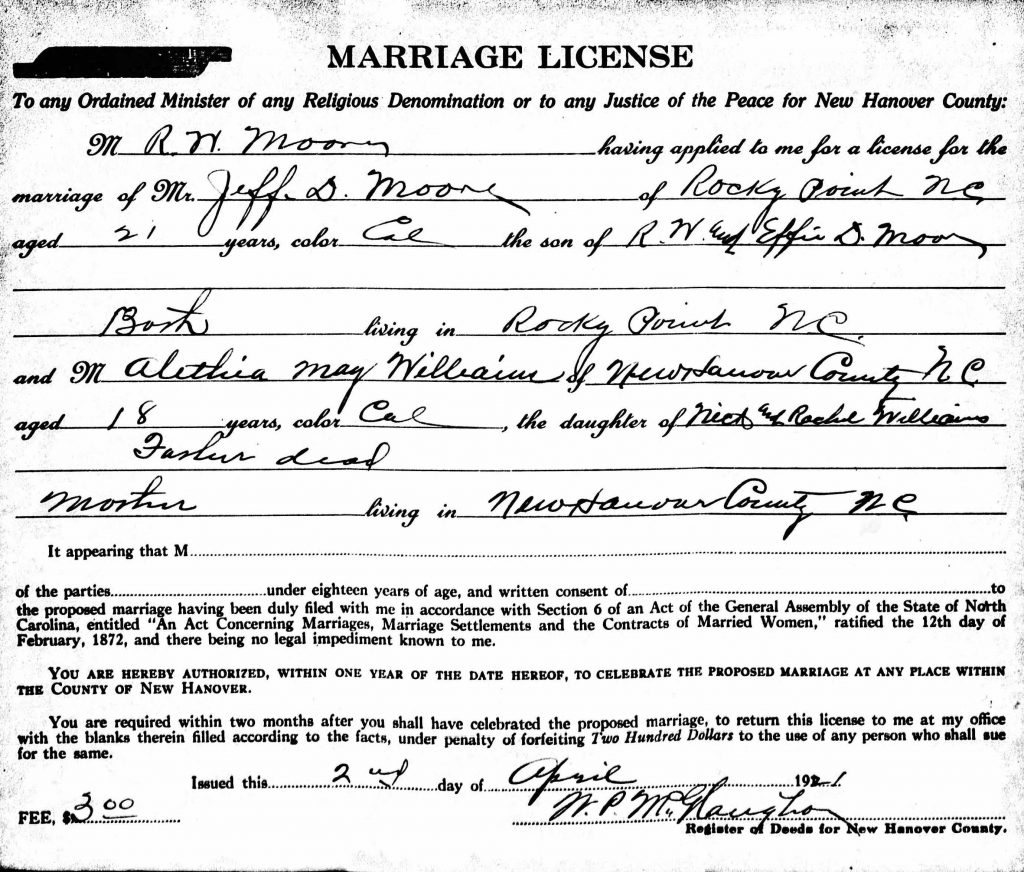 MARRIAGE LICENSE
To any Ordained Minister of any Religious Denomination or to any Justice of the Peace for New Hanover County:
M R. W. Moore having applied to me for a license for the
marriage of Mr. Jeff. D. Moore of Rocky Point N C
aged 21 years, color Col the son of R. W. and Effie D. Moore
Both living in Rocky Point N C.
and M Alethia May Williams of New Hanover County N C.
aged 18 years, color Col , the daughter of Nick and Rachel Williams
Father dead
Mother living in New Hanover County N C
It appearing that M
of the parties under eighteen years of age, and written consent of to
the proposed marriage having been duly filed with me in accordance with Section 6 of an Act of the General Assembly of the State of North
Carolina, entitled "An Act Concerning Marriages, Marriage Settlements and the Contracts of Married Women," ratified the 12th day of
February, 1872, and there being no legal impediment known to me.
YOU ARE HEREBY AUTHORIZED, WITHIN ONE YEAR OF THE DATE HEREOF, TO CELEBRATE THE PROPOSED MARRIAGE AT ANY PLACE WITHIN
THE COUNTY OF NEW HANOVER.
You are required within two months after you shall have celebrated the proposed marriage, to return this license to me at my office
with the blanks therein filled according to the facts, under penalty of forfeiting Two Hundred Dollars to the use of any person who shall sue
for the same.
Issued this 2nd day of April 1921
FEE, $3.00 W. P. McGlaughon
Register of Deeds for New Hanover County.